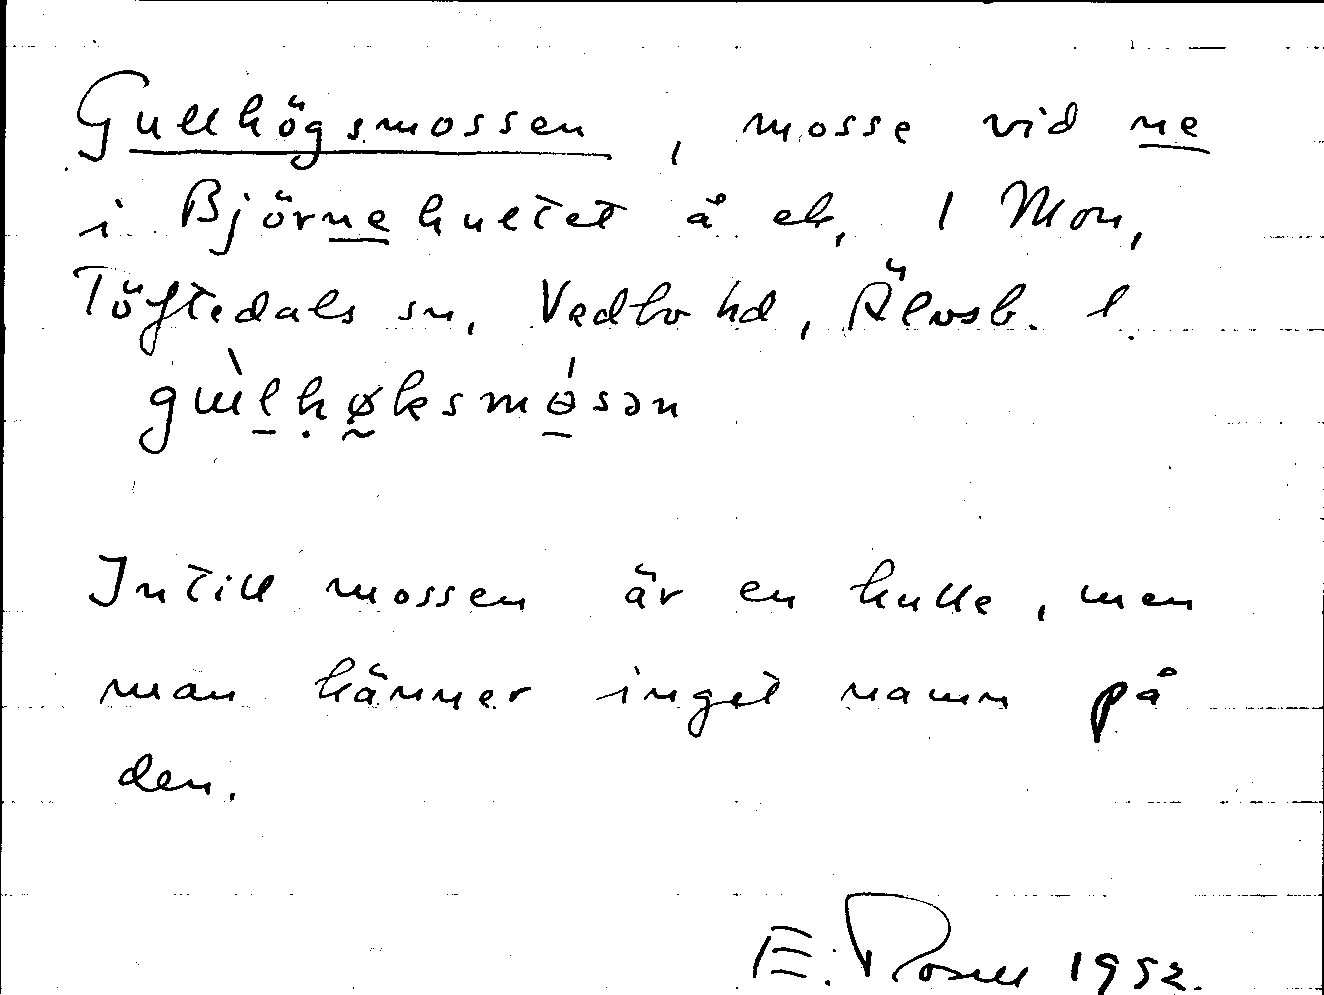 Gullhögsmossen, mosse vid ne
i Björnehultet å ek. 1 Mon,
Töftedals sn, Vedbo hd, Älvsb. l.
gɯ̀lhøksmɵ́sən
Intill mossen är en kulle, men
man känner inget namn på
den.
E. Rosell 1952.